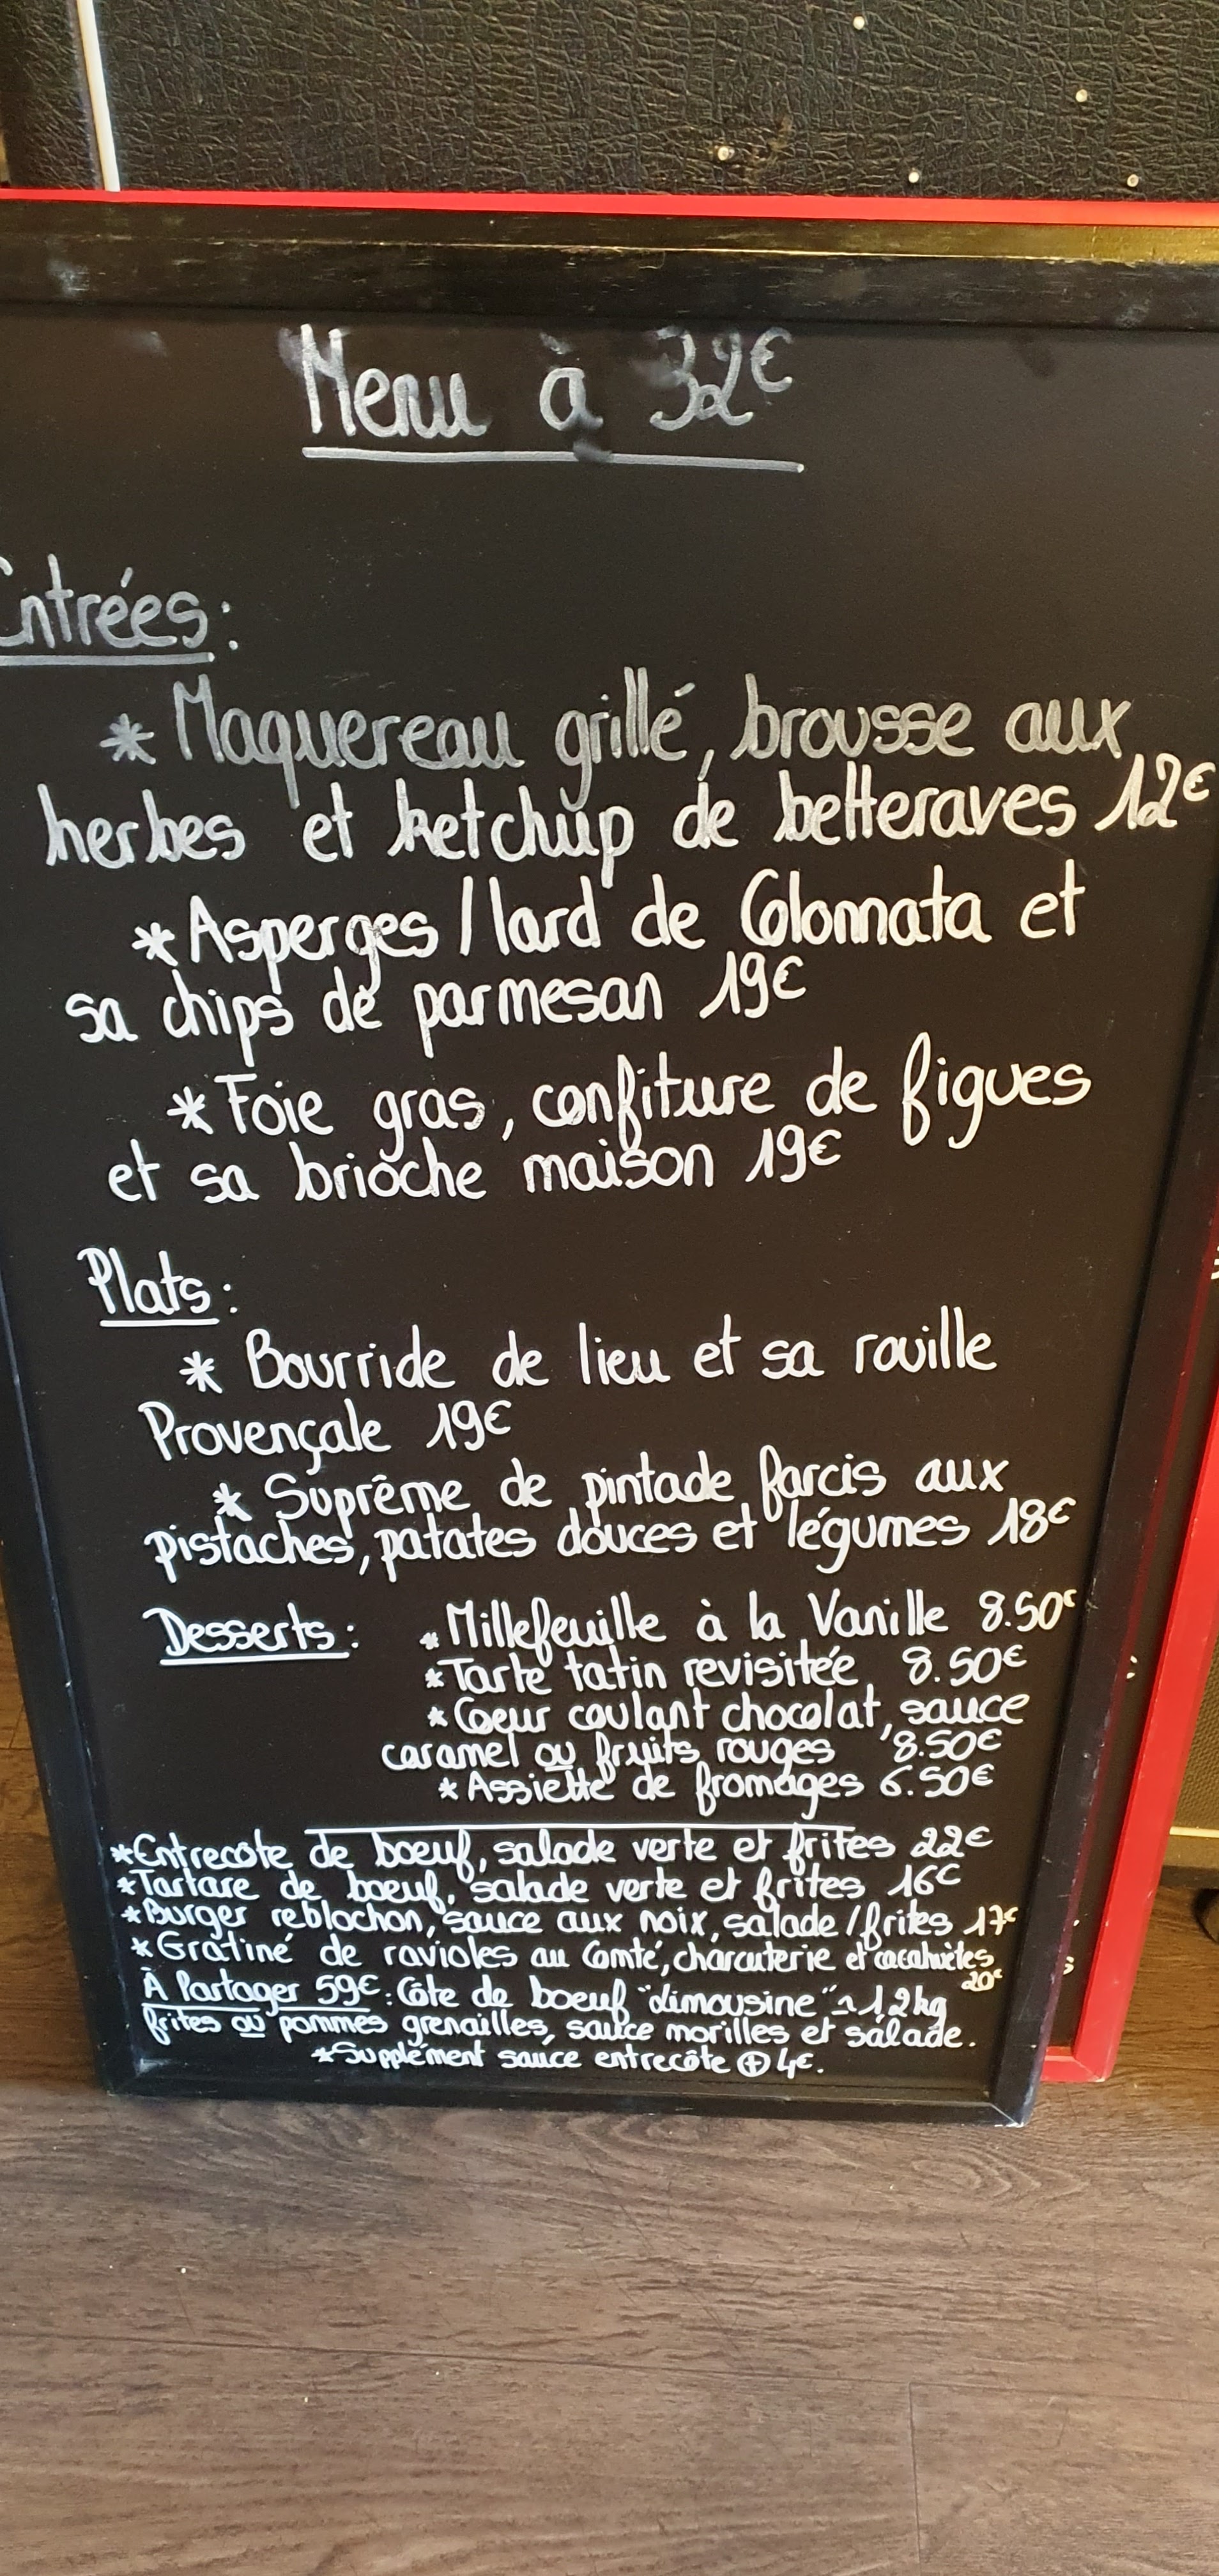 Menu à 32€
Entrées:
* Maquereau grillé, brousse aux
herbes et ketchup de betteraves 12€
* Asperges / lard de Colonnata et
sa chips de parmesan 19€
* Foie gras, confiture de figues
et sa brioche maison 19€
Plats:
* Bourride de lieu et sa rouille
Provençale 19€
* Suprême de pintade farcis aux
pistaches, patates douces et légumes 18€
Desserts: * Millefeuille à la Vanille 8.50€
* Tarte tatin revisitée 8.50€
* Coeur coulant chocolat, sauce
caramel ou fruits rouges 8.50€
* Assiette de fromages 6.50€
* Entrecôte de boeuf, salade verte et frites 22€
* Tartare de boeuf, salade verte et frites 16€
* Burger reblochon, sauce aux noix, salade / frites 17€
* Gratiné de ravioles au Comté, charcuterie et cacahuètes
20€
À Partager 59€: Côte de boeuf "Limousine" ~ 1,2kg
frites ou pommes grenailles, sauce morilles et salade.
* Supplément sauce entrecôte + 4€.